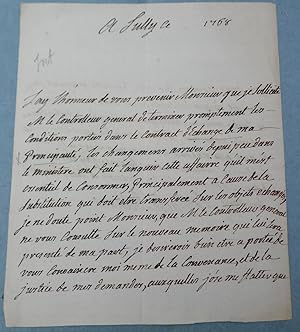 A Sully Ce 1768
J'ay l'honneur de vous prevenir Monsieur que je sollicite
M. le Controlleur general de terminer promptement les
Conditions portées dans le Contract d'Echange de ma
Principauté, les changemens arrivés depuis peu dans
le ministere ont fait languir cette affaire qui m'est
essentiel de Consommer, Principalement a Cause de la
substitution qui doit estre transferée sur les objets echangés,
je ne doute point Monsieur, que M. le Controlleur general
ne vous Consulte sur le nouveau memoire qui luy sera
presenté de ma part, je desirerois bien être a portée de
vous Convaincre moi meme de la Convenance, et de la
justice de mes demandes, auxquelles j'ose me flatter que